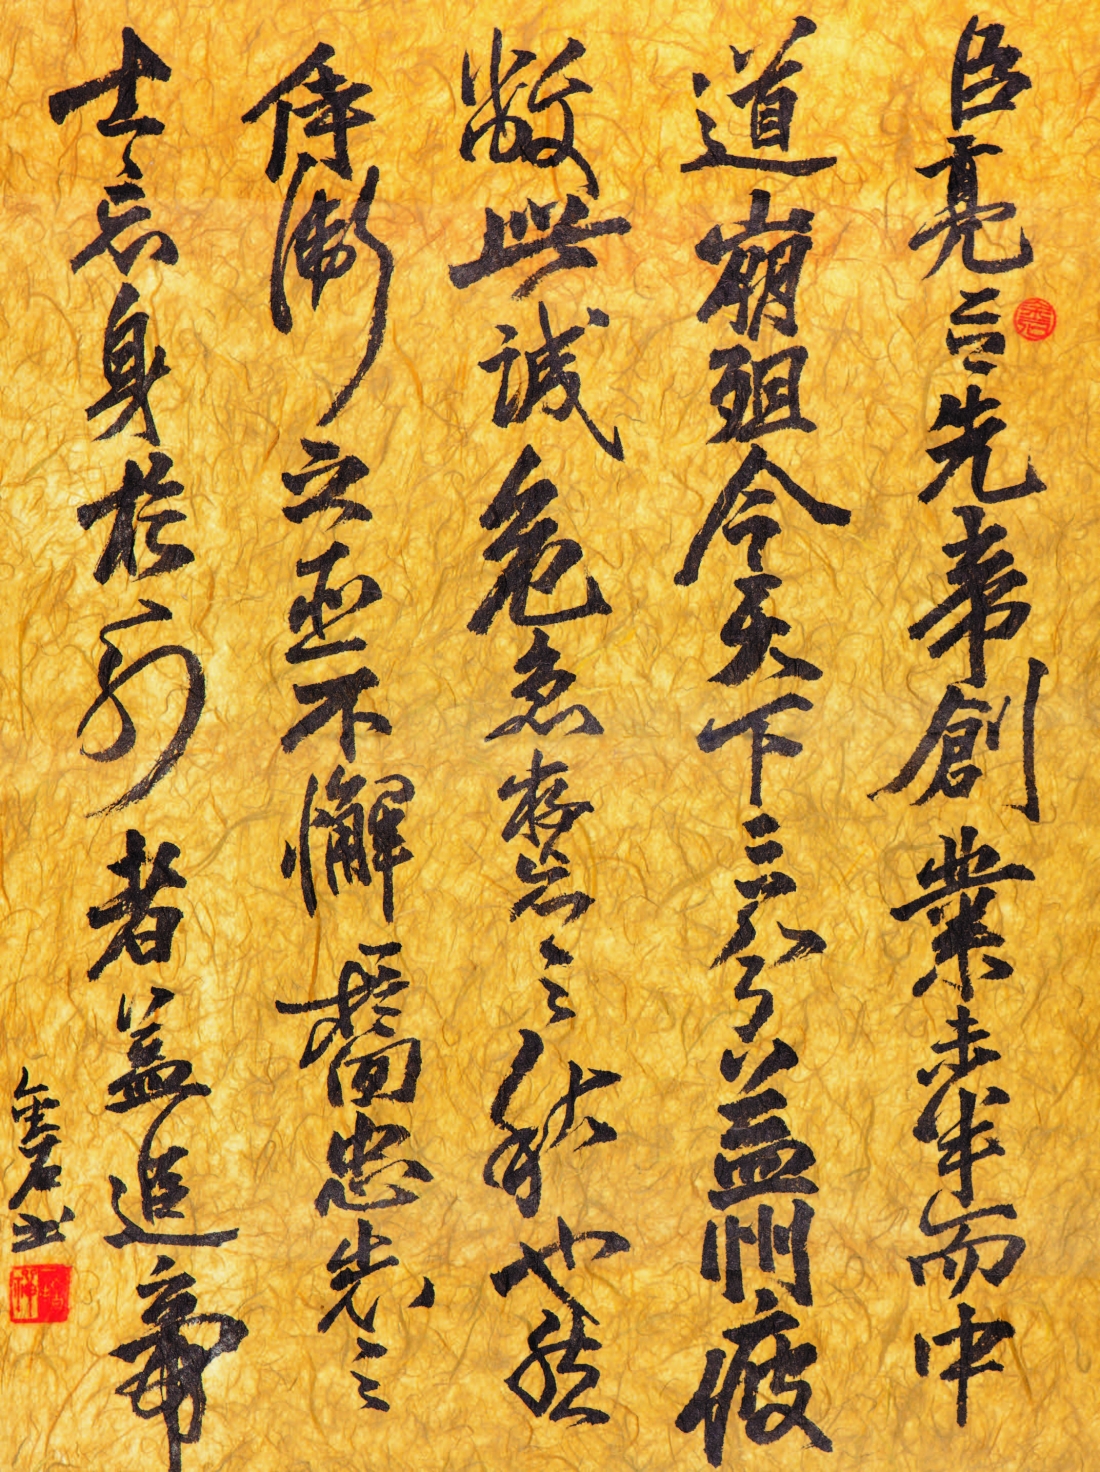 臣亮言先帝創業未半而中
道崩殂今天下三分益州疲
敝此誠危急存亡之秋也然
侍衛之臣不懈於內忠志之
士忘身於外者蓋追帝